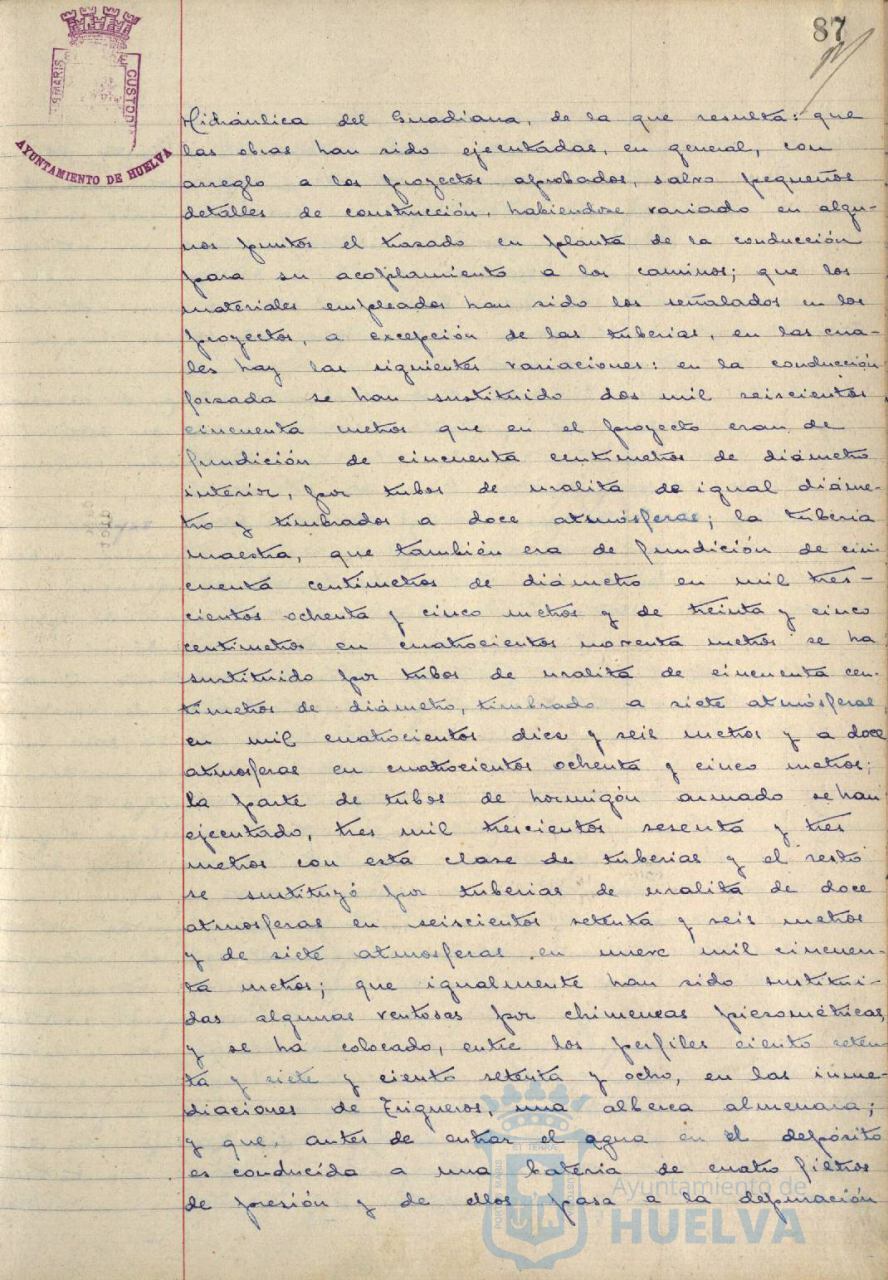 87
S MARIS
CUSTOD
AYUNTAMIENTO DE HUELVA
Hidráulica del Guadiana, de la que resulta: que
las obras han sido ejecutadas, en general, con
arreglo a los proyectos aprobados, salvo pequeños
detalles de construcción, habiendose variado en algu-
nos puntos el trazado en planta de la conducción
para su acoplamiento a los caminos; que los
materiales empleados han sido los señalados en los
proyectos, a excepción de las tuberias, en las cua-
les hay las siguientes variaciones: en la conducción
forzada se han sustituido dos mil seiscientos
cincuenta metros que en el proyecto eran de
fundición de cincuenta centimetros de diámetro
interior, por tubos de uralita de igual diáme-
tro y timbrados a doce atmósferas; la tuberia
maestra, que también era de fundición de cin-
cuenta centimetros de diámetro en mil tres-
cientos ochenta y cinco metros y de treinta y cinco
centimetros en cuatrocientos noventa metros se ha
sustituido por tubos de uralita de cincuenta cen-
timetros de diámetro, timbrado a siete atmósferas
en mil cuatrocientos diez y seis metros y a doce
atmosferas en cuatrocientos ochenta y cinco metros;
la parte de tubos de hormigón armado se han
ejecutado, tres mil trescientos sesenta y tres
metros con esta clase de tuberias y el resto
se sustituyó por tuberias de uralita de doce
atmosferas en seiscientos setenta y seis metros
y de siete atmosferas en nueve mil cincuen-
ta metros; que igualmente han sido sustitui-
das algunas ventosas por chimeneas piezométricas,
y se ha colocado, entre los perfiles ciento seten-
ta y siete y ciento setenta y ocho, en las inme-
diaciones de Trigueros, una alberca almenara;
y que, antes de entrar el agua en el depósito
es conducida a una bateria de cuatro filtros
de presión y de ellos pasa a la depuración
Ayuntamiento de
HUELVA